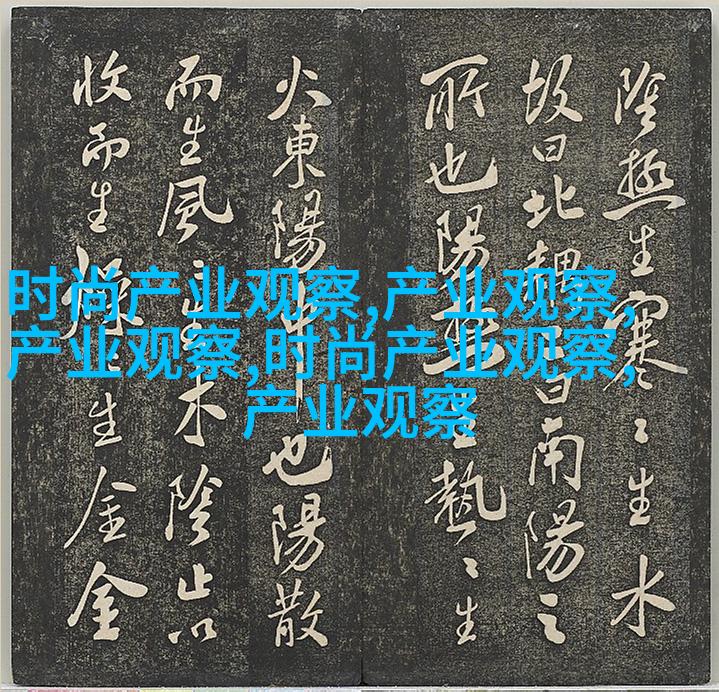 时尚产业观察,产业观察,
产业观察,时尚产业观察,
产业观察
陰極生寒々生水
故曰北曰南陽之
所也陽生熱々生
火東陽中也陽散
而生風生木陰止以
收而生燥生金金